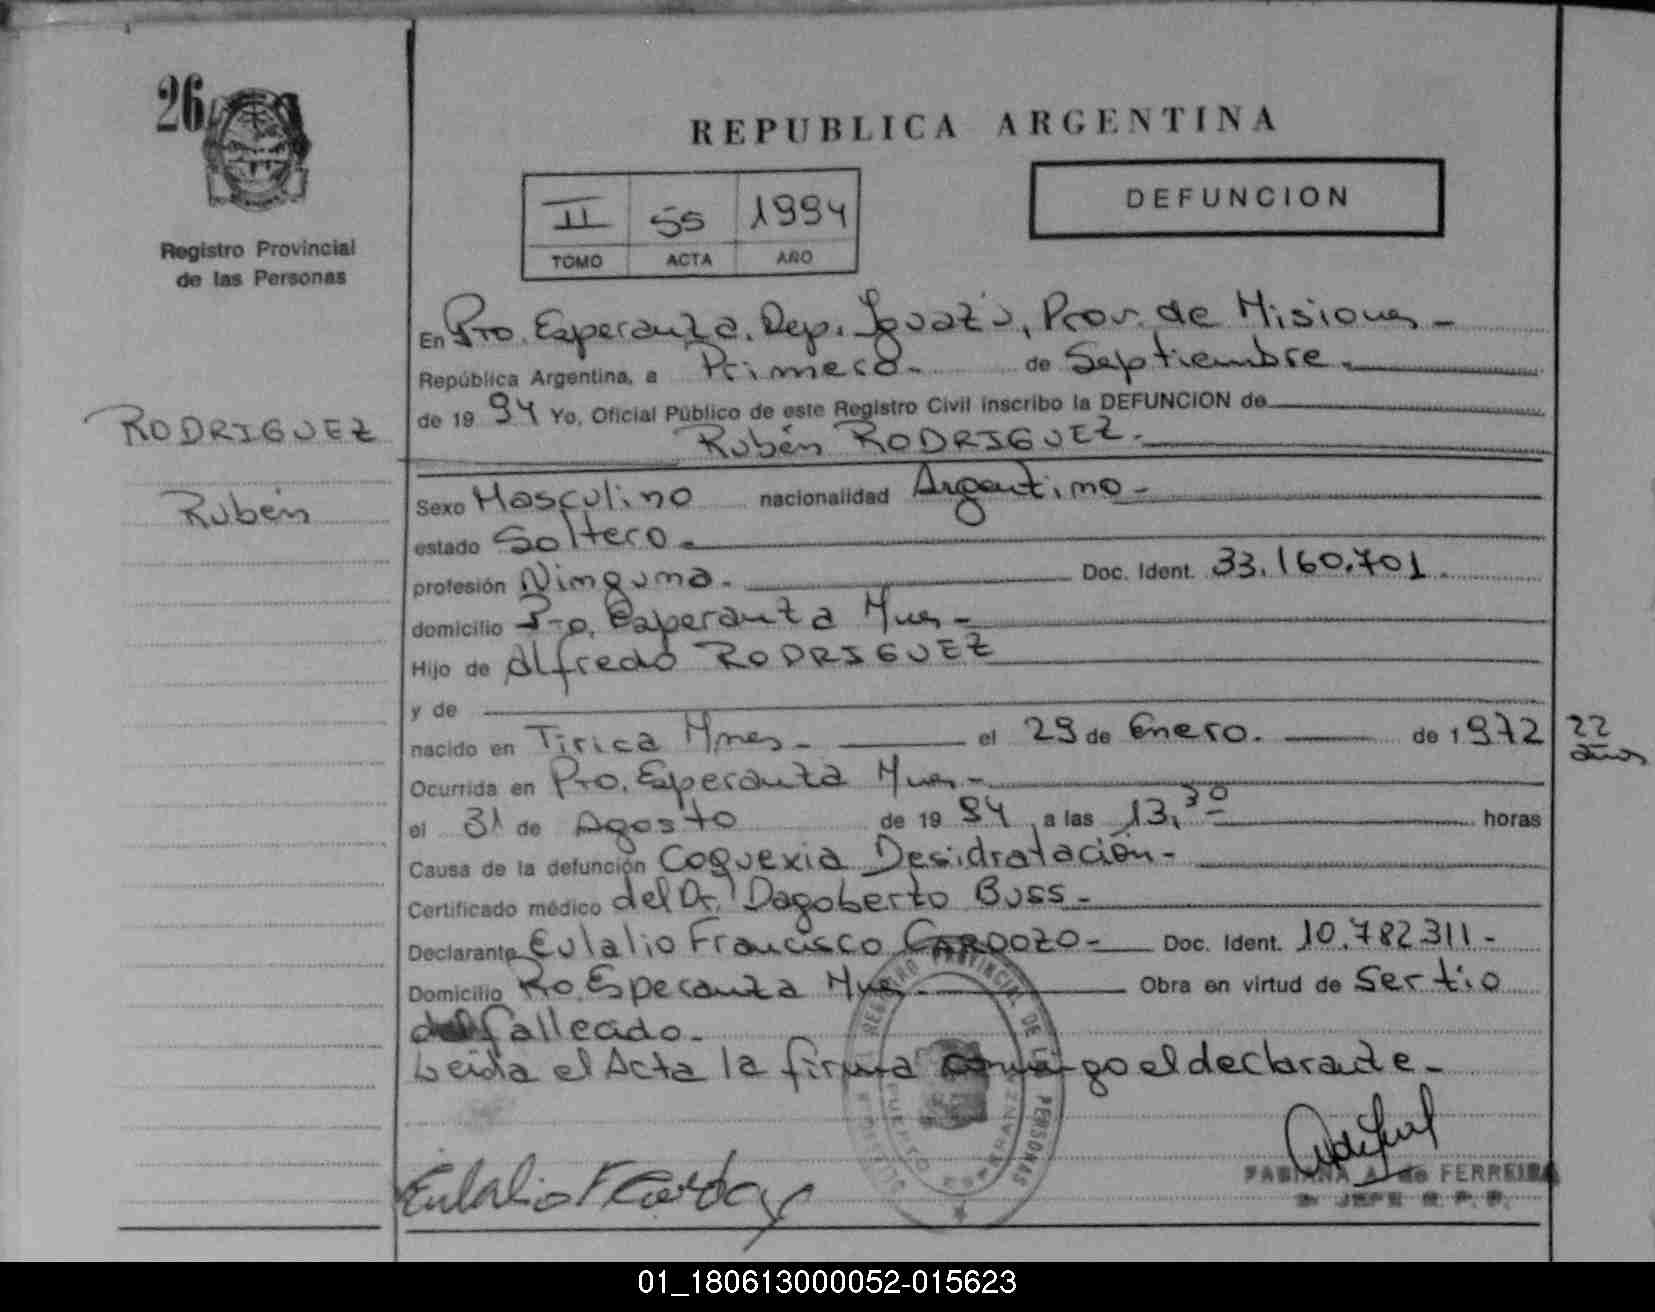 26
REPUBLICA ARGENTINA
II 55 1994
TOMO ACTA AÑO
DEFUNCION
Registro Provincial
de las Personas
En Pto. Esperanza. Dep. Iguazú, Prov. de Misiones -
República Argentina, a Primero. de Septiembre.
de 19 94 Yo, Oficial Público de este Registro Civil inscribo la DEFUNCION de
Rubén RODRIGUEZ.
RODRIGUEZ
Rubén
Sexo Masculino nacionalidad Argentino -
estado Soltero.
profesión Ninguna. Doc. Ident. 33.160.701.
domicilio Pto. Esperanza Mnes -
Hijo de Alfredo RODRIGUEZ
y de
nacido en Tirica Mnes - el 29 de Enero. de 1972 22 años
Ocurrida en Pto. Esperanza Mnes -
el 31 de Agosto de 19 94 a las 13,30 horas
Causa de la defunción Coquexia Desidratación -
Certificado médico del Dr. Dagoberto Buss -
Declarante Eulalio Francisco CARDOZO - Doc. Ident. 10.782.311 -
Domicilio Pto. Esperanza Mnes - Obra en virtud de Sertio
del fallecido.
Leida el Acta la firma conmigo el declarante -
REGISTRO PROVINCIAL DE LAS PERSONAS
PUERTO ESPERANZA
Eulalio F Cardozo
FABIANA A. de FERREIRA
JEFE R. P. P.
01_180613000052-015623